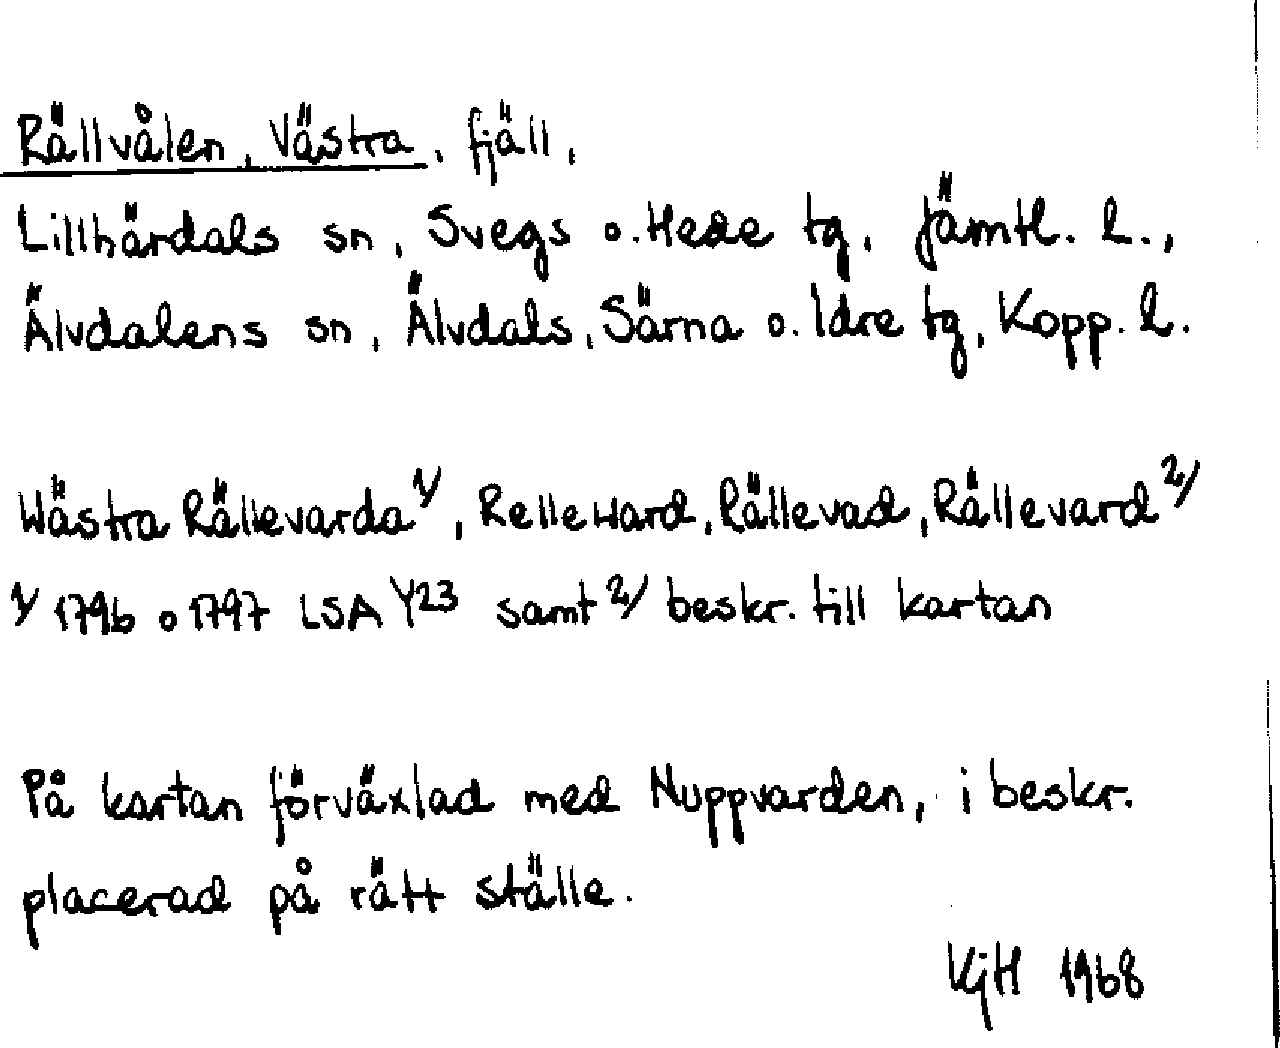 Rällvålen, Västra, fjäll,
Lillhärdals sn, Svegs o. Hede tg, Jämtl. l.,
Älvdalens sn, Älvdals, Särna o. Idre tg, Kopp. l.
Wästra Rällevarda 1/, Relleward, Rällevad, Rållevard 2/
1/ 1796 o 1797 LSA Y23 samt 2/ beskr. till kartan
På kartan förväxlad med Nuppvarden, i beskr.
placerad på rätt ställe.
KjH 1968